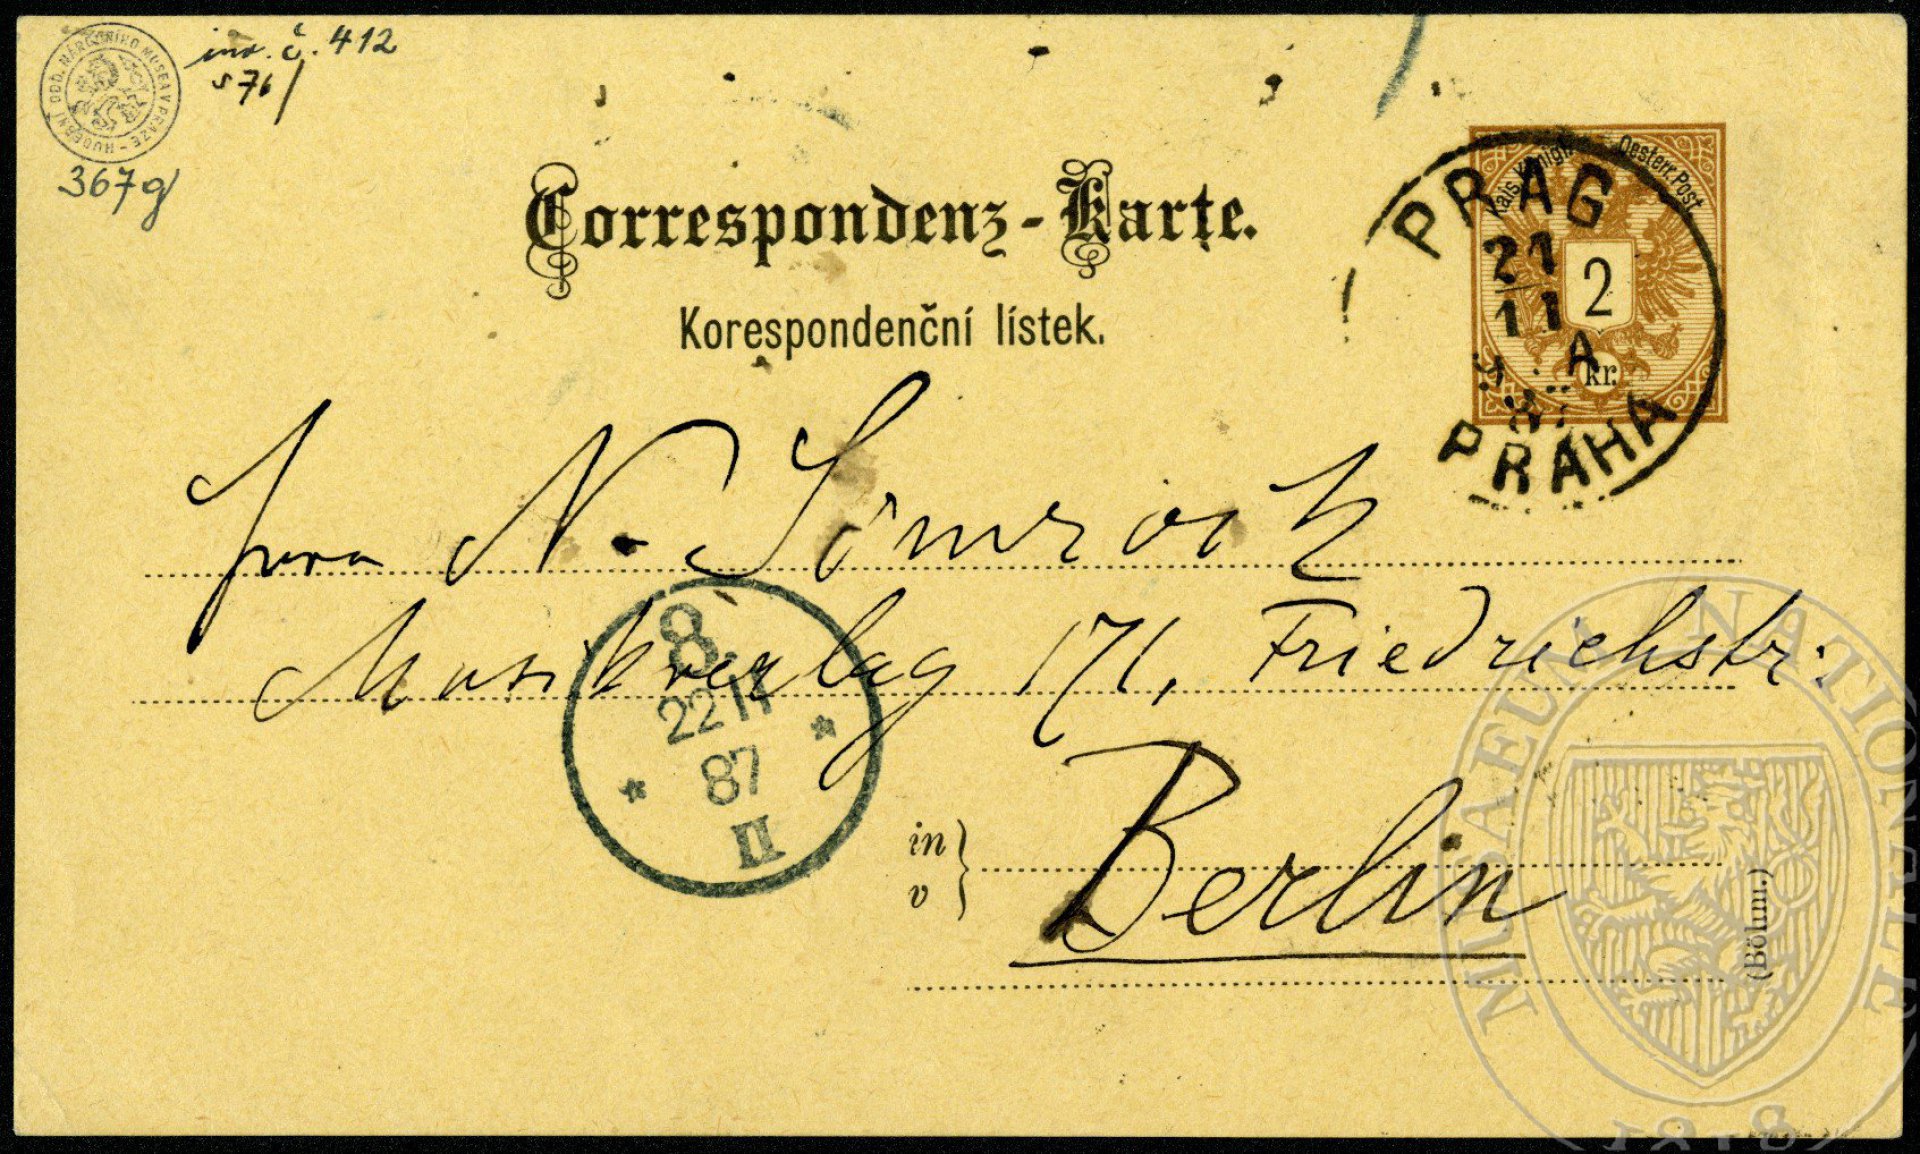 HUDEBNÍ ODD. NÁRODNÍHO MUSEA V PRAZE
inv. č. 412
s 76/
367g
Correspondenz-Karte.
Korespondenční lístek.
Kais. Königl. Oesterr. Post
2
kr.
PRAG
21
11
A
87
PRAHA
N. Simrock
Musikverlag 171, Friedrichstr:
8.
22 11
87
II
in
v
Berlin
(Böhm.)
MUSAEUM NATIONALE
1818